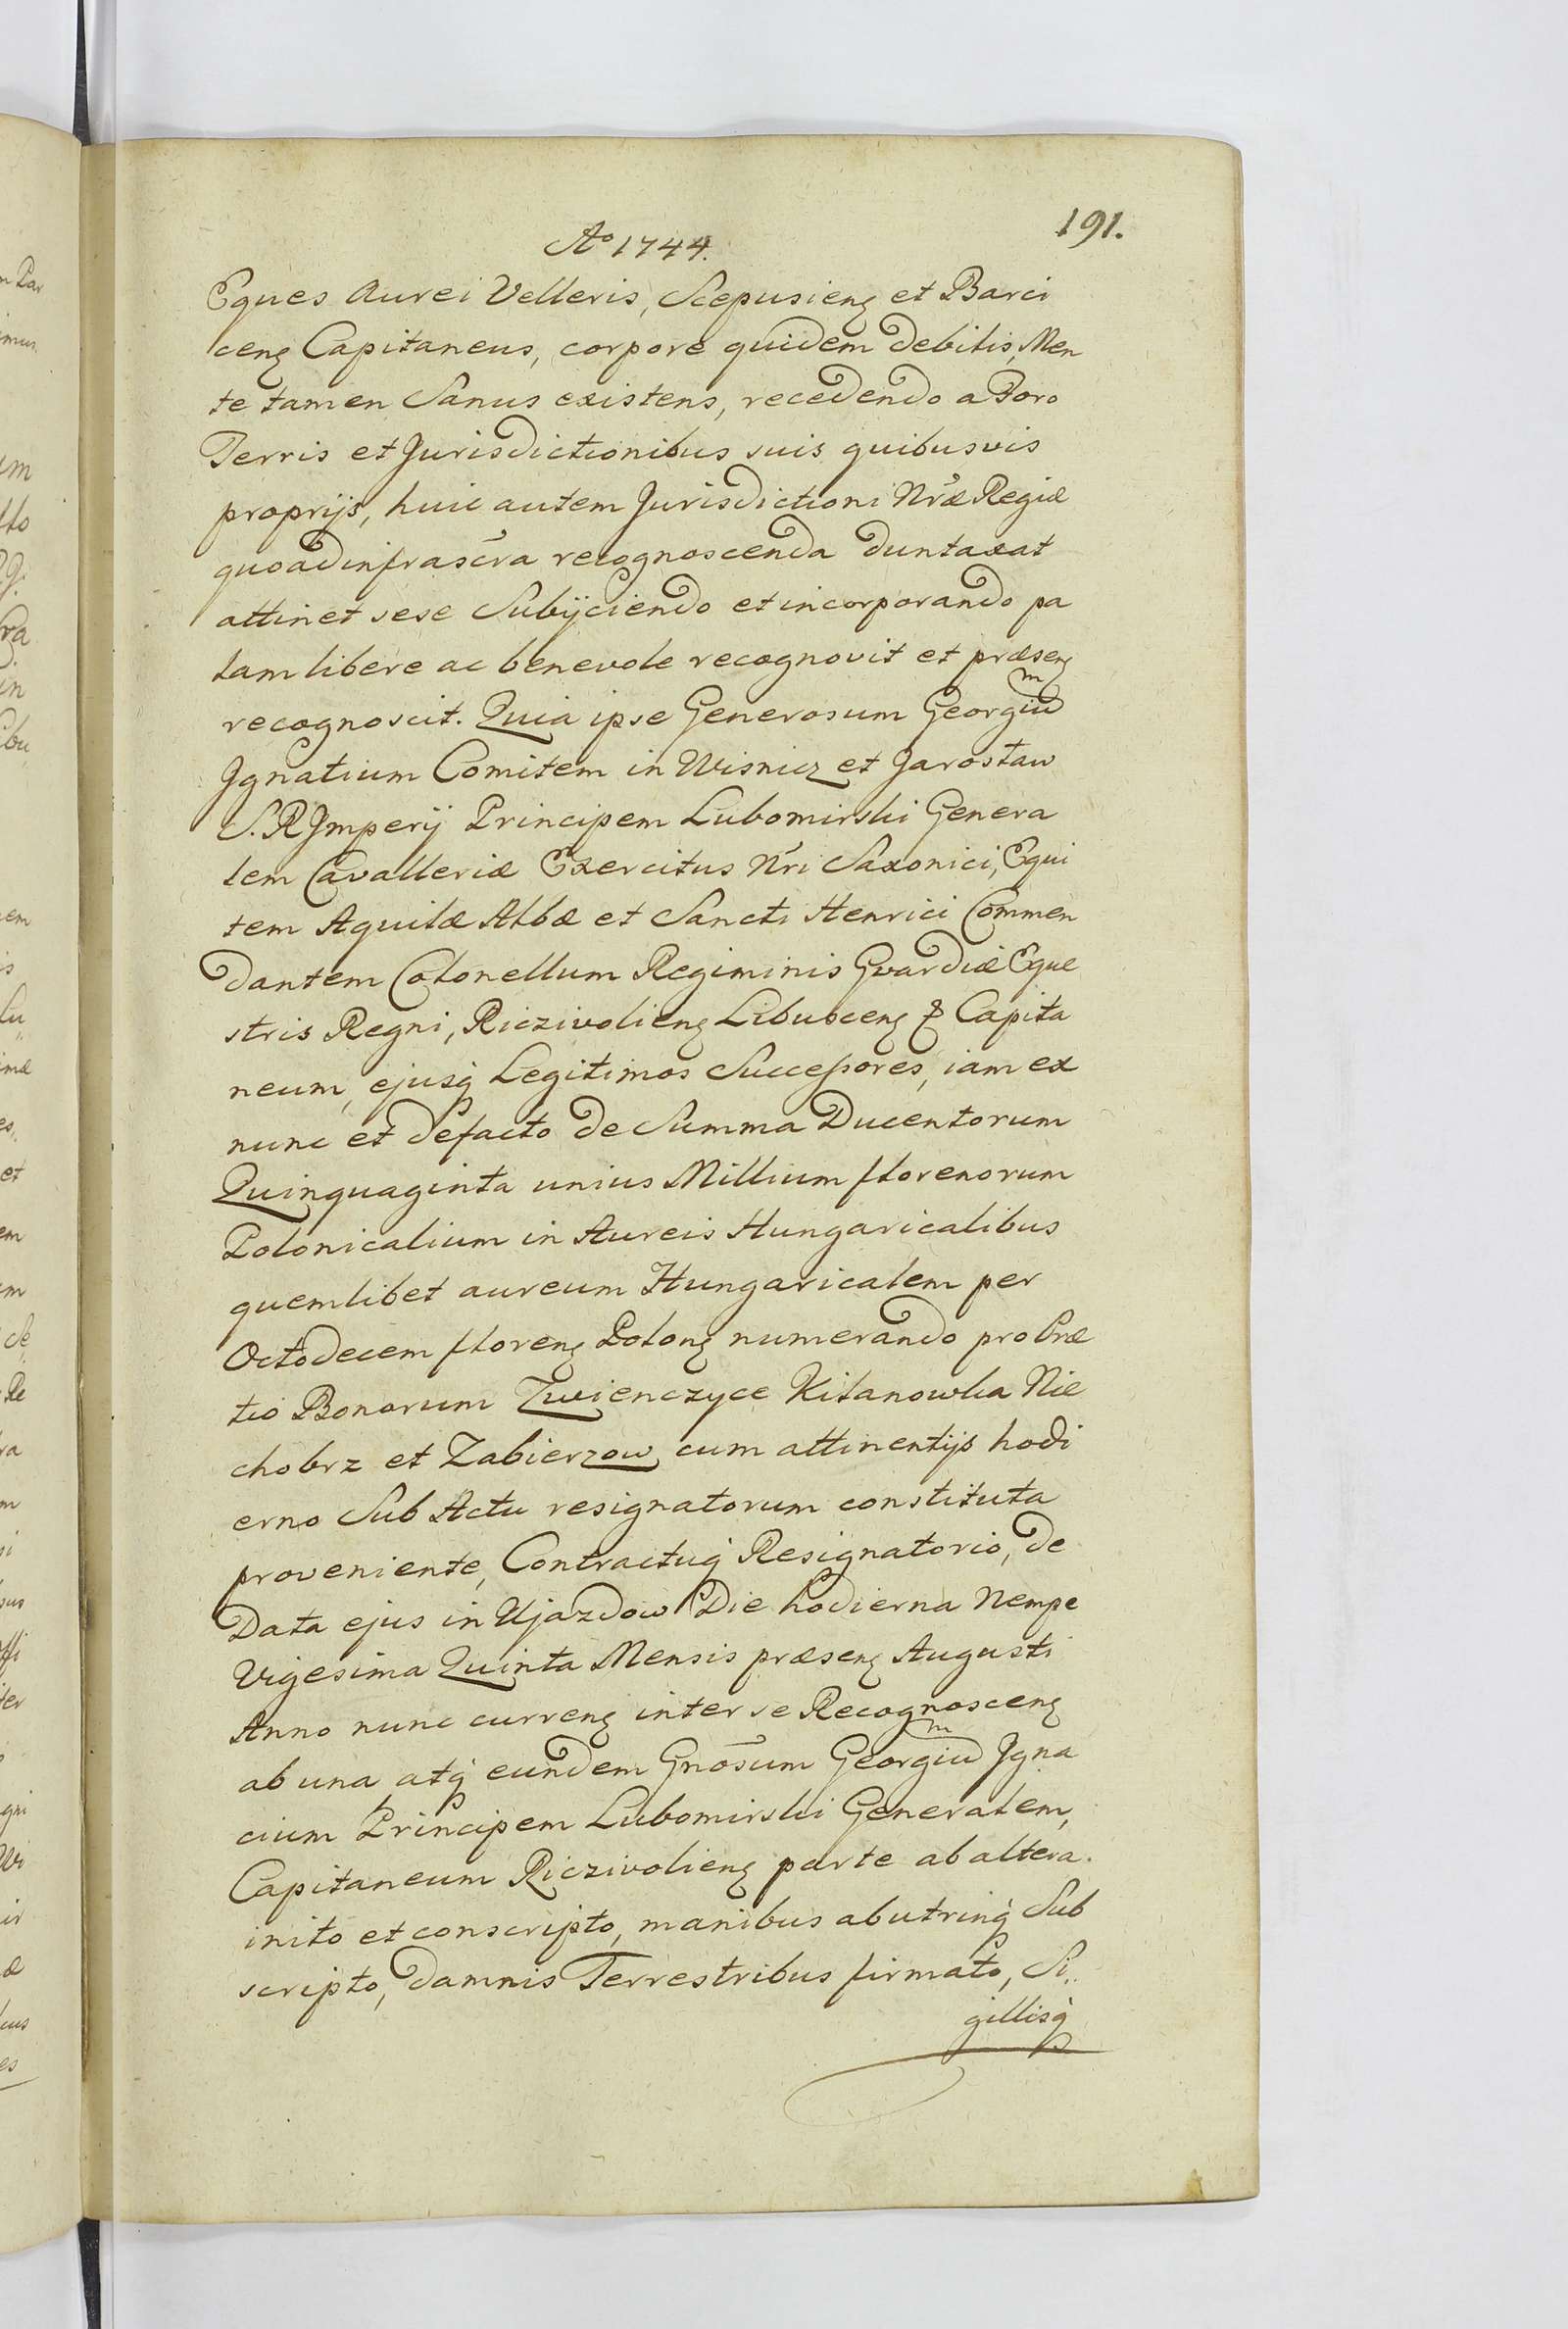 191.
Ao 1744.
Eques Aurei Velleris, Scepusieng et Barci
ceng Capitaneus, corpore quidem debilis, Men
te tamen Sanus existens, recedendo a Foro
Terris et Jurisdictionibus suis quibusvis
proprijs, huic autem Jurisdictioni Nræ Regiæ
quoad infrascra recognoscenda duntaxat
attinet sese Subijciendo et incorporando pa
lam libere ac benevole recognovit et præseng
recognoscit. Quia ipse Generosum Georgium
Ignatium Comitem in Wisnicz et Jarosław
S. R Imperij Principem Lubomirski Genera
lem Cavalleriæ Exercitus Nri Saxonici, Equi
tem Aquilæ Albæ et Sancti Henrici Commen
dantem Colonellum Regiminis Gvardiæ Eque
stris Regni, Riczivolieng Libusceng & Capita
neum, ejusq Legitimos Successores, iam ex
nunc et de facto de Summa Ducentorum
Quinquaginta unius Millium florenorum
Polonicalium in Aureis Hungaricalibus
quemlibet aureum Hungaricalem per
Octodecem floreng Polong numerando pro Præ
tio Bonorum Zwienczyce Kilanowka Nie
chobrz et Zabierzow cum attinentijs hodi
erno Sub Actu resignatorum constituta
proveniente, Contractuq Resignatorio, de
Data ejus in Ujazdow Die hodierna Nempe
Vigesima Quinta Mensis præseng Augusti
Anno nunc curreng inter se Recognosceng
ab una atq eundem Gnosum Georgium Igna
cium Principem Lubomirski Generalem,
Capitaneum Riczivolieng parte ab altera.
inito et conscripto, manibus ab utrinq Sub
scripto, damnis Terrestribus firmato, Si„
gillisq